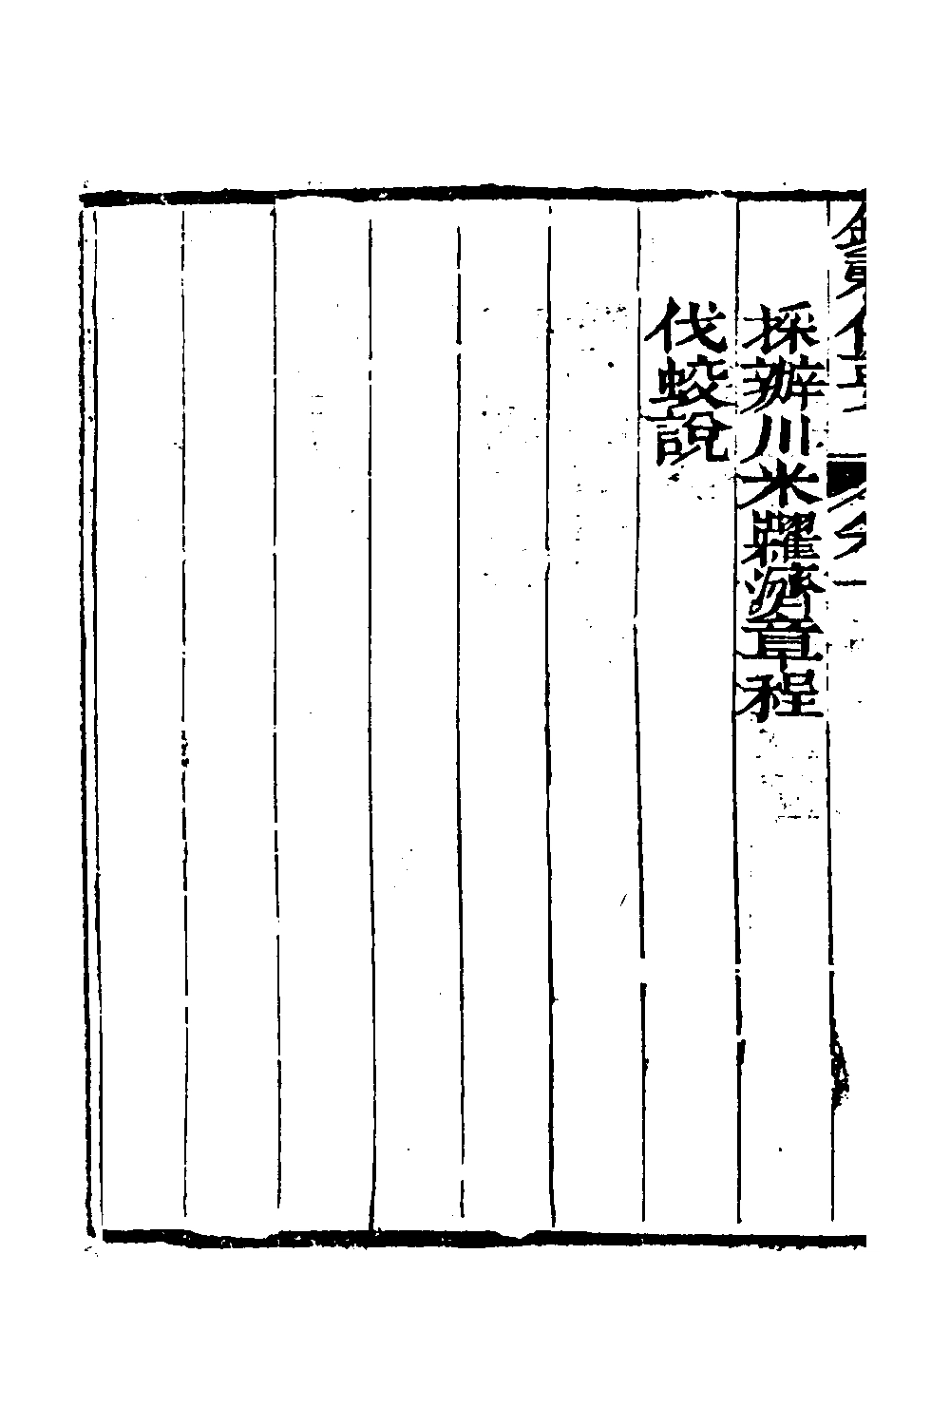 採辦川米糶濟章程
伐蛟說